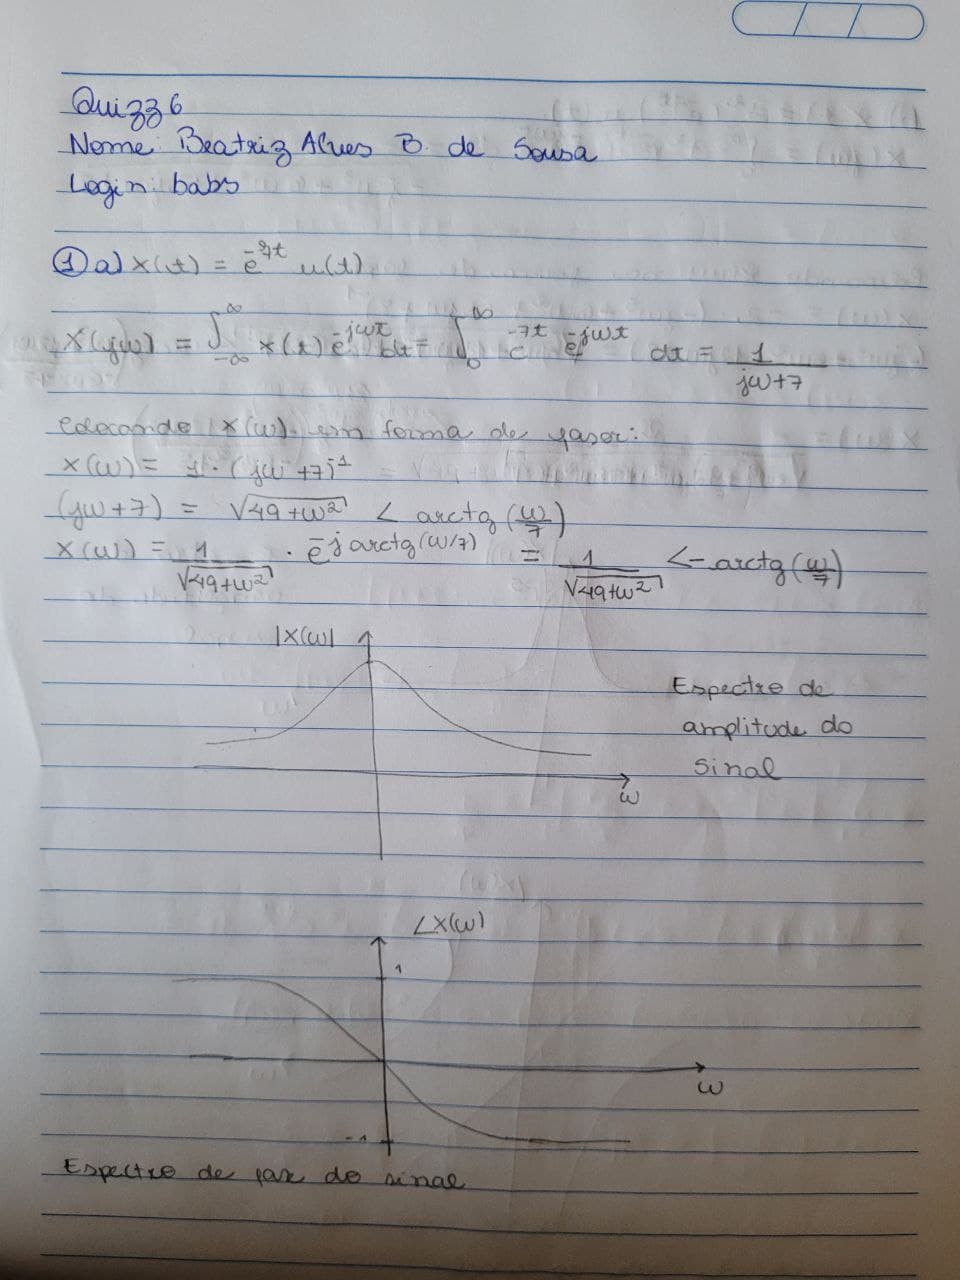 Quizz 6
Nome: Beatriz Alves B. de Sousa
Login: babs
① a) x(t) = e^-7t u(t)
X(jω) = ∫_-∞^∞ x(t) e^-jωt dt = ∫_0^∞ e^-7t e^-jωt dt = 1/(jω+7)
Colocando X(ω) em forma de fasor:
X(ω) = 1 · (jω +7)^-1
(jω + 7) = √(49+ω²) ∠ arctg(ω/7)
X(ω) = 1/√(49+ω²) · e^-j arctg(ω/7) = 1/√(49+ω²) ∠-arctg(ω/7)
|X(ω)|
Espectro de
amplitude do
sinal
ω
∠X(ω)
1
ω
-1
Espectro de fase do sinal